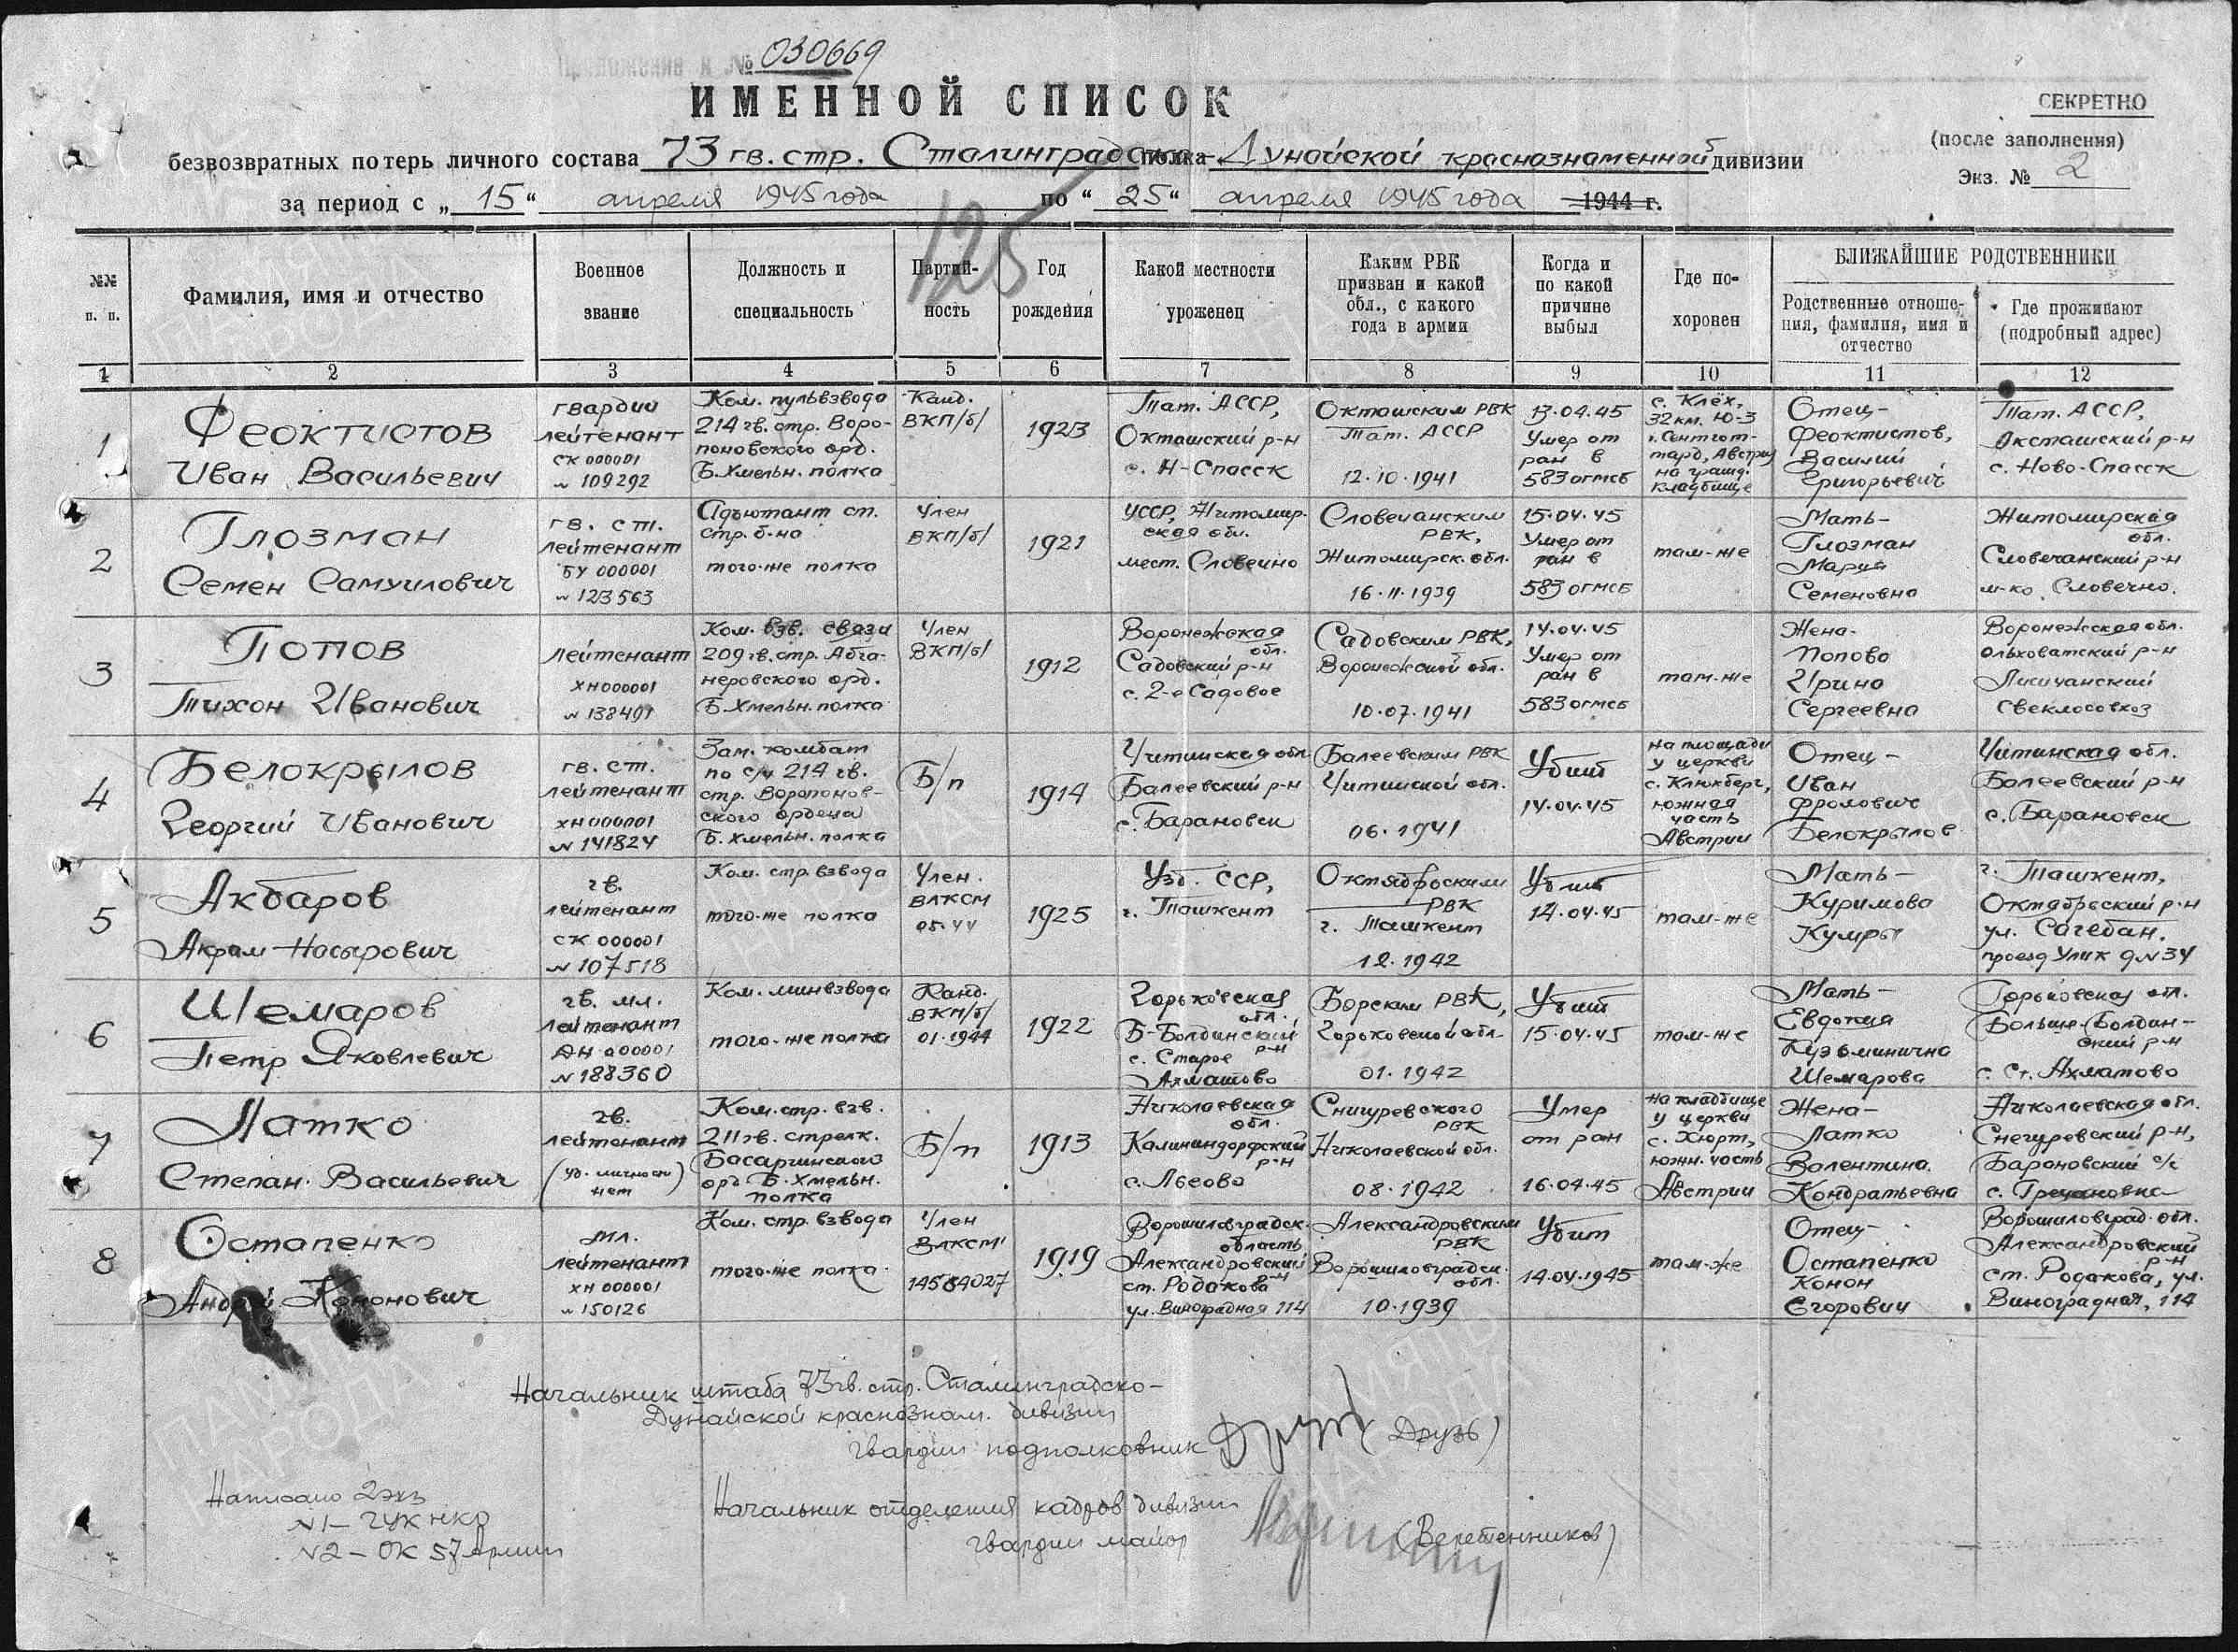 № 030669
ИМЕННОЙ СПИСОК
СЕКРЕТНО
(после заполнения)
Экз. № 2
безвозвратных потерь личного состава 73 гв. стр. Сталинградско- полка Дунайской краснознаменной дивизии
за период с „15“ апреля 1945 года по “25“ апреля 1945 года 1944 г.
125
№№ п. п.
Фамилия, имя и отчество
Военное звание
Должность и специальность
Партий-
ность
Год рождения
Какой местности уроженец
Каким РВК
призван и какой
обл., с какого
года в армии
Когда и
по какой
причине
выбыл
Где по-
хоронен
БЛИЖАЙШИЕ РОДСТВЕННИКИ
Родственные отноше-
ния, фамилия, имя и
отчество
Где проживают
(подробный адрес)
1 2 3 4 5 6 7 8 9 10 11 12
1
Феоктистов
Иван Васильевич
гвардии
лейтенант
СК 000001
№ 109292
Ком. пульвзвода
214 гв. стр. Воро-
поновского орд.
Б.Хмельн. полка
Канд.
ВКП/б/
1923
Тат. АССР,
Окташский р-н
с. Н-Спасск
Окташским РВК
Тат. АССР
12.10.1941
13.04.45
Умер от
ран в
583 огмсб
с. Клёх,
32 км. Ю-З
г. Сентгот-
тард, Австрия
на гражд.
кладбище
Отец-
Феоктистов,
Василий
Григорьевич
Тат. АССР,
Акташский р-н
с. Ново-Спасск
2
Глозман
Семен Самуилович
гв. ст.
лейтенант
БУ 000001
№ 123563
Адъютант ст.
стр. б-на
того-же полка
Член
ВКП/б/
1921
УССР, Житомир-
ская обл.
мест. Словечно
Словечанским
РВК,
Житомирск. обл.
16.11.1939
15.04.45
Умер от
ран в
583 огмсб
там-же
Мать-
Глозман
Мария
Семеновна
Житомирская
обл.
Словечанский р-н
м-ко. Словечно.
3
Попов
Тихон Иванович
лейтенант
ХН 000001
№ 138491
Ком. взв. связи
209 гв. стр. Абга-
неровского орд.
Б.Хмельн. полка
Член
ВКП/б/
1912
Воронежская
обл.
Садовский р-н
с. 2-е Садовое
Садовским РВК,
Воронежской обл.
10.07.1941
14.04.45
Умер от
ран в
583 огмсб
там-же
Жена-
Попова
Ирина
Сергеевна
Воронежская обл.
Ольховатский р-н
Лисичанский
свеклосовхоз
4
Белокрылов
Георгий Иванович
гв. ст.
лейтенант
ХН 000001
№ 141824
Зам. комбат
по с/ч 214 гв.
стр. Воропонов-
ского ордена
Б. Хмельн. полка
Б/п
1914
Читинская обл.
Балеевский р-н
с. Барановск
Балеевским РВК
Читинской обл.
06.1941
Убит
14.04.45
на площади
у церкви
с. Клюхберг,
южная
часть
Австрии
Отец-
Иван
Фролович
Белокрылов
Читинская обл.
Балеевский р-н
с. Барановск
5
Акбаров
Акрам Насырович
гв.
лейтенант
СК 000001
№ 107518
Ком. стр. взвода
того-же полка
Член.
ВЛКСМ
05.44
1925
Узб. ССР,
г. Ташкент
Октябрьским
РВК
г. Ташкент
12.1942
Убит
14.04.45
там-же
Мать-
Куримова
Кумры
г. Ташкент,
Октябрьский р-н
ул. Сагебан.
проезд Улик д № 34
6
Шемаров
Петр Яковлевич
гв. мл.
лейтенант
АН 000001
№ 188360
Ком. минвзвода
того-же полка
Канд.
ВКП/б/
01.1944
1922
Горьковская
обл.
Б-Болдинский
р-н
с. Старое
Ахматово
Борским РВК,
Горьковской обл.
01.1942
Убит
15.04.45
там-же
Мать-
Евдокия
Кузьминична
Шемарова
Горьковская обл.
Больше-Болдин-
ский р-н
с. Ст. Ахматово
7
Латко
Степан Васильевич
гв.
лейтенант
(уд. личности
нет)
Ком. стр. взв.
211 гв. стрелк.
Басаргинского
орд. Б. Хмельн.
полка
Б/п
1913
Николаевская
обл.
Калининдорфский
р-н
с. Львово
Снигуревского
РВК
Николаевской обл.
08.1942
Умер
от ран
16.04.45
на кладбище
у церкви
с. Хюрт,
южн. часть
Австрии
Жена-
Латко
Валентина
Кондратьевна
Николаевская обл.
Снегуревский р-н,
Барановский с/с
с. Гречановка
8
Остапенко
Андрей Кононович
мл.
лейтенант
ХН 000001
№ 150126
Ком. стр. взвода
того-же полка
Член
ВЛКСМ
14584027
1919
Ворошиловградск.
область
Александровский
р-н
ст. Родакова
ул. Виноградная 114
Александровским
РВК
Ворошиловградск.
обл.
10.1939
Убит
14.04.1945
там-же
Отец-
Остапенко
Конон
Егорович
Ворошиловград. обл.
Александровский
р-н
ст. Родакова, ул.
Виноградная, 114
Начальник штаба 73 гв. стр. Сталинградско-
Дунайской краснознам. дивизии
гвардии подполковник (Друзь)
Начальник отделения кадров дивизии
гвардии майор (Веретенников)
Написано 2 экз
№1 – ГУК НКО
№2 – ОК 57 армии
ПАМЯТЬ НАРОДА